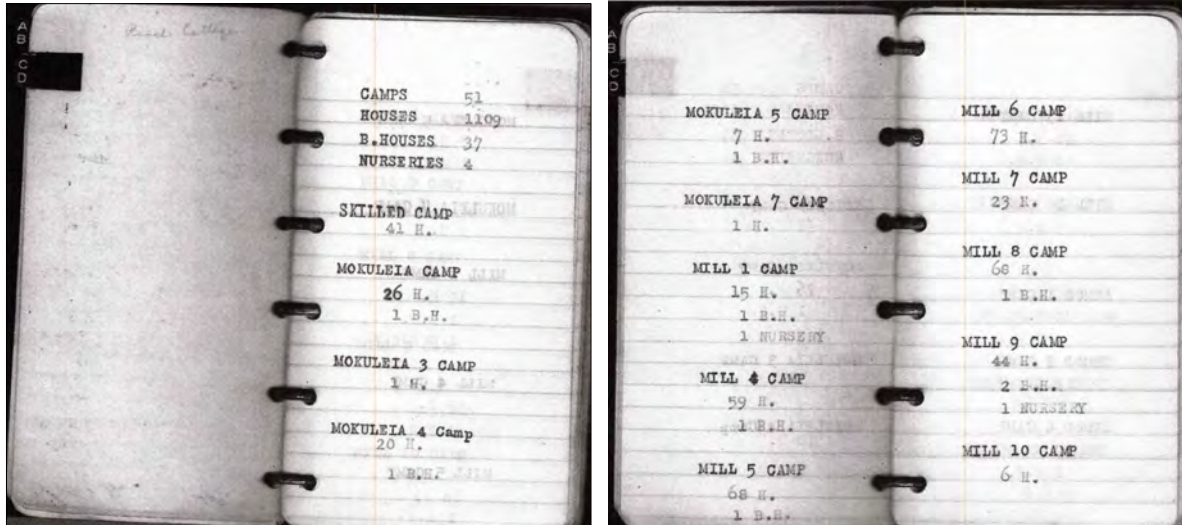 A
B
C
D
CAMPS 51
HOUSES 1109
B.HOUSES 37
NURSERIES 4
SKILLED CAMP
41 H.
MOKULEIA CAMP
26 H.
1 B.H.
MOKULEIA 3 CAMP
1 H.
MOKULEIA 4 Camp
20 H.
1 B.H.
A
B
C
D
MOKULEIA 5 CAMP
7 H.
1 B.H.
MOKULEIA 7 CAMP
1 H.
MILL 1 CAMP
15 H.
1 B.H.
1 NURSERY
MILL 4 CAMP
59 H.
1 B.H.
MILL 5 CAMP
68 H.
1 B.H.
MILL 6 CAMP
73 H.
MILL 7 CAMP
23 H.
MILL 8 CAMP
68 H.
1 B.H.
MILL 9 CAMP
44 H.
2 B.H.
1 NURSERY
MILL 10 CAMP
6 H.